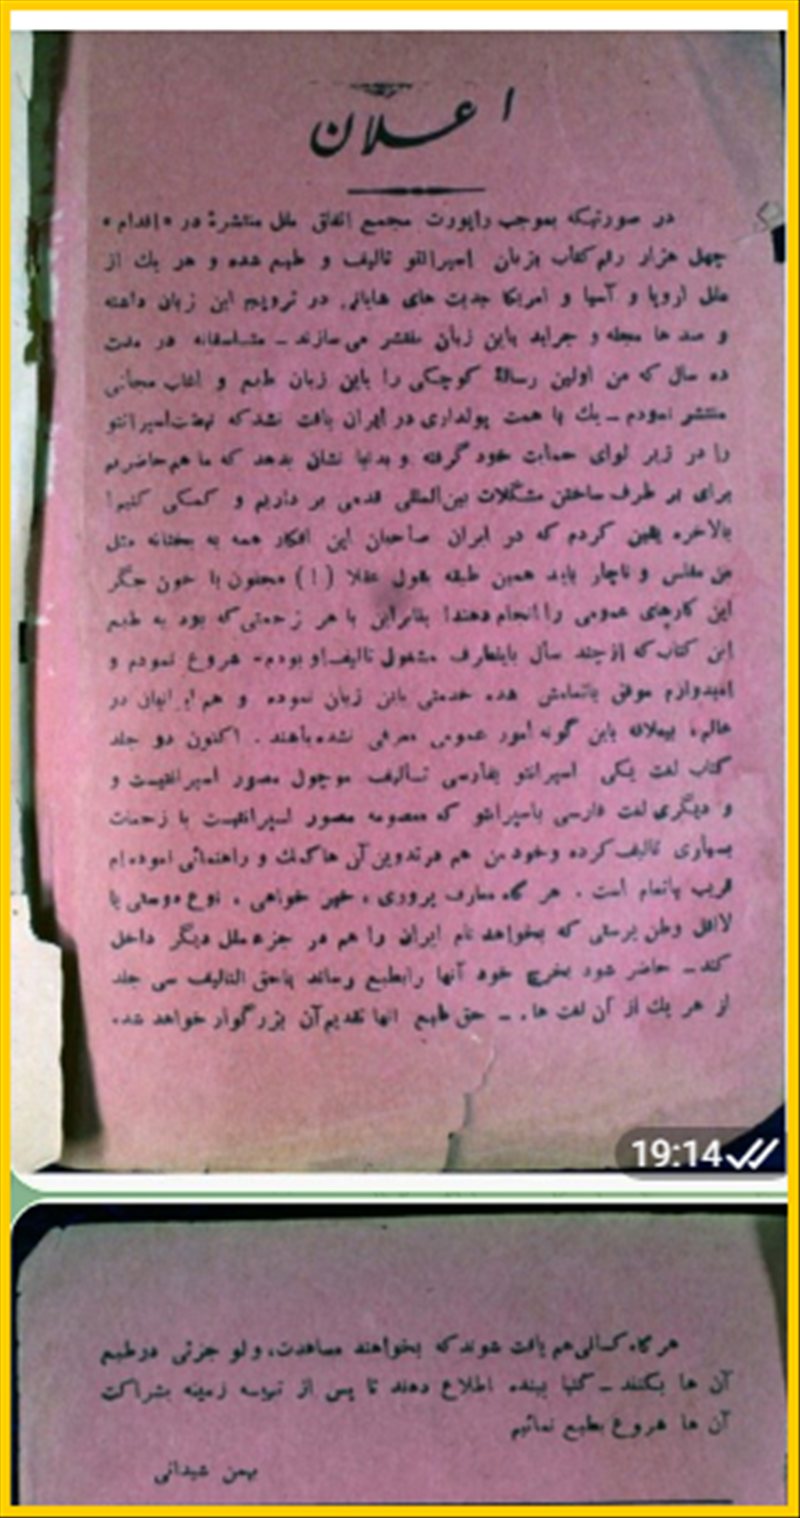 اعلان
در صورتیکه بموجب راپورت مجمع اتفاق ملل منتشرهٔ در «اقدام»
چهل هزار رقم کتاب بزبان اسپرانتو تالیف و طبع شده و هر یك از
ملل اروپا و آسیا و امریکا جدیت های شایانی در ترویج این زبان داشته
و صد ها مجله و جراید باین زبان منتشر می سازند ــ متاسفانه در مدت
ده سال که من اولین رسالهٔ کوچکی را باین زبان طبع و اغلب مجانی
منتشر نمودم ــ یك با همت پولداری در ایران یافت نشد که نهضت اسپرانتو
را در زیر لوای حمایت خود گرفته و بدنیا نشان بدهد که ما هم حاضریم
برای بر طرف ساختن مشگلات بین‌المللی قدمی بر داریم و کمکی کنیم!
بالاخره یقین کردم که در ایران صاحبان این افکار همه بد بختانه مثل
من مفلس و ناچار باید همین طبقه بقول عقلا (!) مجنون با خون جگر
این کارهای عمومی را انجام دهند! بنابراین با هر زحمتی که بود به طبع
این کتاب که از چند سال باینطرف مشغول تالیف او بودم- شروع نمودم و
امیدوارم موفق باتمامش شده خدمتی باین زبان نموده و هم ایرانیان در
عالم، بیعلاقه باین گونه امور عمومی معرفی نشده باشند . اکنون دو جلد
کتاب لغت یکی اسپرانتو بفارسی تـالیف موچول مصور اسپرانتیست و
و دیگری لغت فارسی باسپرانتو که معصومه مصور اسپرانتیست با زحمات
بسیاری تالیف کرده و خود من هم در تدوین آن ها کمك و راهنمائی نموده‌ام
قریب باتمام است . هر گاه معارف پروری ، خیر خواهی ، نوع دوستی یا
لااقل وطن پرستی که بخواهد نام ایران را هم در جزء ملل دیگر داخل
کند ــ حاضر شود بخرج خود آنها را بطبع رساند باحق التالیف سی جلد
از هر یك از آن لغت ها . ــ حق طبع آنها تقدیم آن بزرگوار خواهد شد.
19:14
هر گاه کسانی هم یافت شوند که بخواهند مساعدت، ولو جزئی در طبع
آن ها بکنند ــ کتبا ببنده اطلاع دهند تا پس از تهیه زمینه بشراکت
آن ها شروع بطبع نمائیم
بهمن شیدانی